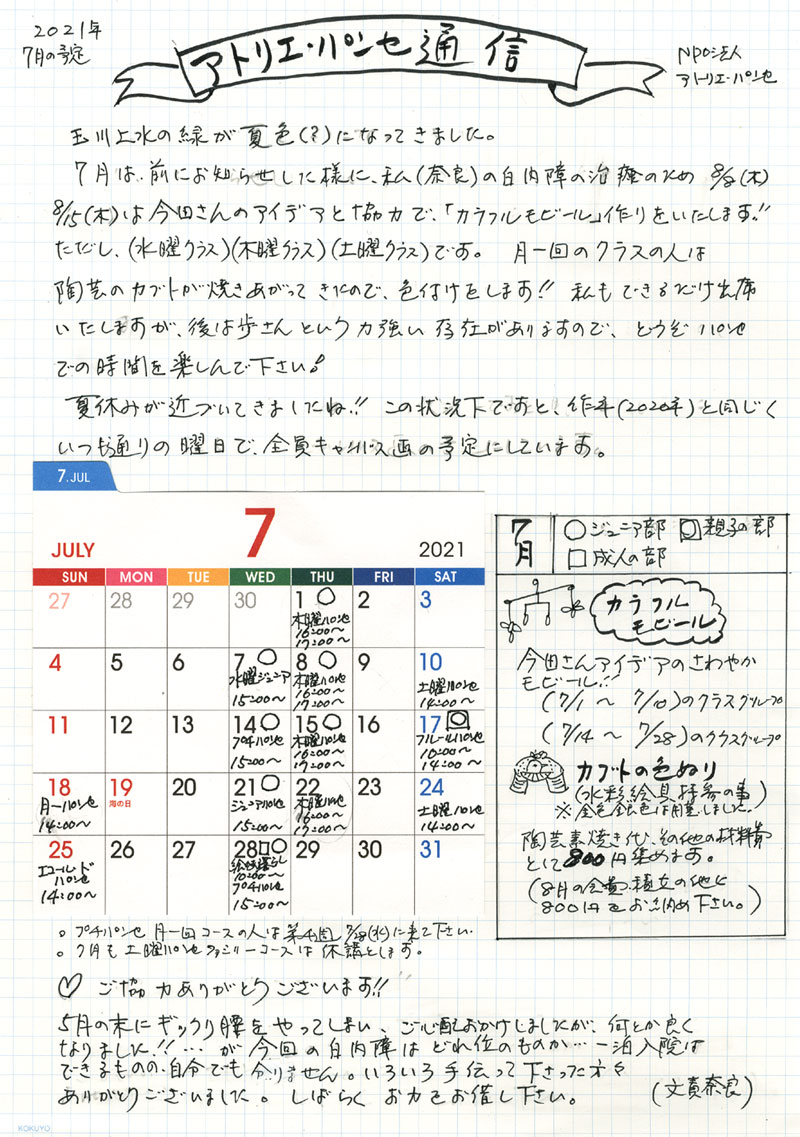 2021年
7月の予定
アトリエ・パンセ通信
NPO法人
アトリエ・パンセ
玉川上水の緑が夏色(?)になってきました。
7月は、前にお知らせした様に、私(奈良)の白内障の治療のため 8/8(木)
8/15(木)は今田さんのアイデアと協力で、「カラフルモビール」作りをいたします!!
ただし、(水曜クラス)(木曜クラス)(土曜クラス)です。 月一回のクラスの人は
陶芸のカブトが焼きあがってきたので、色付けをします!! 私もできるだけ出席
いたしますが、後は歩さんという力強い存在がありますので、どうぞパンセ
での時間を楽しんで下さい!
夏休みが近づいてきましたね!! この状況下ですと、昨年(2020年)と同じく
いつも通りの曜日で、全員キャンバス画の予定にしています。
7.JUL
7
JULY
2021
SUN MON TUE WED THU FRI SAT
27 28 29 30 1 2 3
木曜パンセ
16:00〜
17:00〜
4 5 6 7 8 9 10
水曜ジュニア
15:00〜
木曜パンセ
16:00〜
17:00〜
土曜パンセ
14:00〜
11 12 13 14 15 16 17
プチパンセ
15:00〜
木曜パンセ
16:00〜
17:00〜
フルールパンセ
10:00〜
14:00〜
18 19 20 21 22 23 24
月一パンセ
14:00〜
海の日
ジュニアパンセ
15:00〜
木曜パンセ
16:00〜
17:00〜
土曜パンセ
14:00〜
25 26 27 28 29 30 31
エコールド
パンセ
14:00〜
10:00〜
プチパンセ
15:00〜
7月
ジュニア部 親子の部
成人の部
カラフル
モビール
今田さんアイデアのさわやか
モビール!!
(7/1 〜 7/10)のクラスグループ
(7/14 〜 7/28)のクラスグループ
カブトの色ぬり
(水彩絵具持参の事)
※金色銀色は用意しました。
陶芸素焼き代、その他の材料費
として800円集めます。
(8月の会費、積立の他に
800円をお納め下さい。)
。プチパンセ 月一回コースの人は第4週 7/28(水)に来て下さい
。7月も土曜パンセファミリーコースは休講とします。
♡ ご協力ありがとうございます!!
5月の末にギックリ腰をやってしまい、ご心配おかけしましたが、何とか良く
なりました!!…が今回の白内障はどれ位のものか…一泊入院は
できるものの、自分でも分りません。いろいろ手伝って下さった方々
ありがとうございました。しばらくお力をお借し下さい。
(文責奈良)
KOKUYO